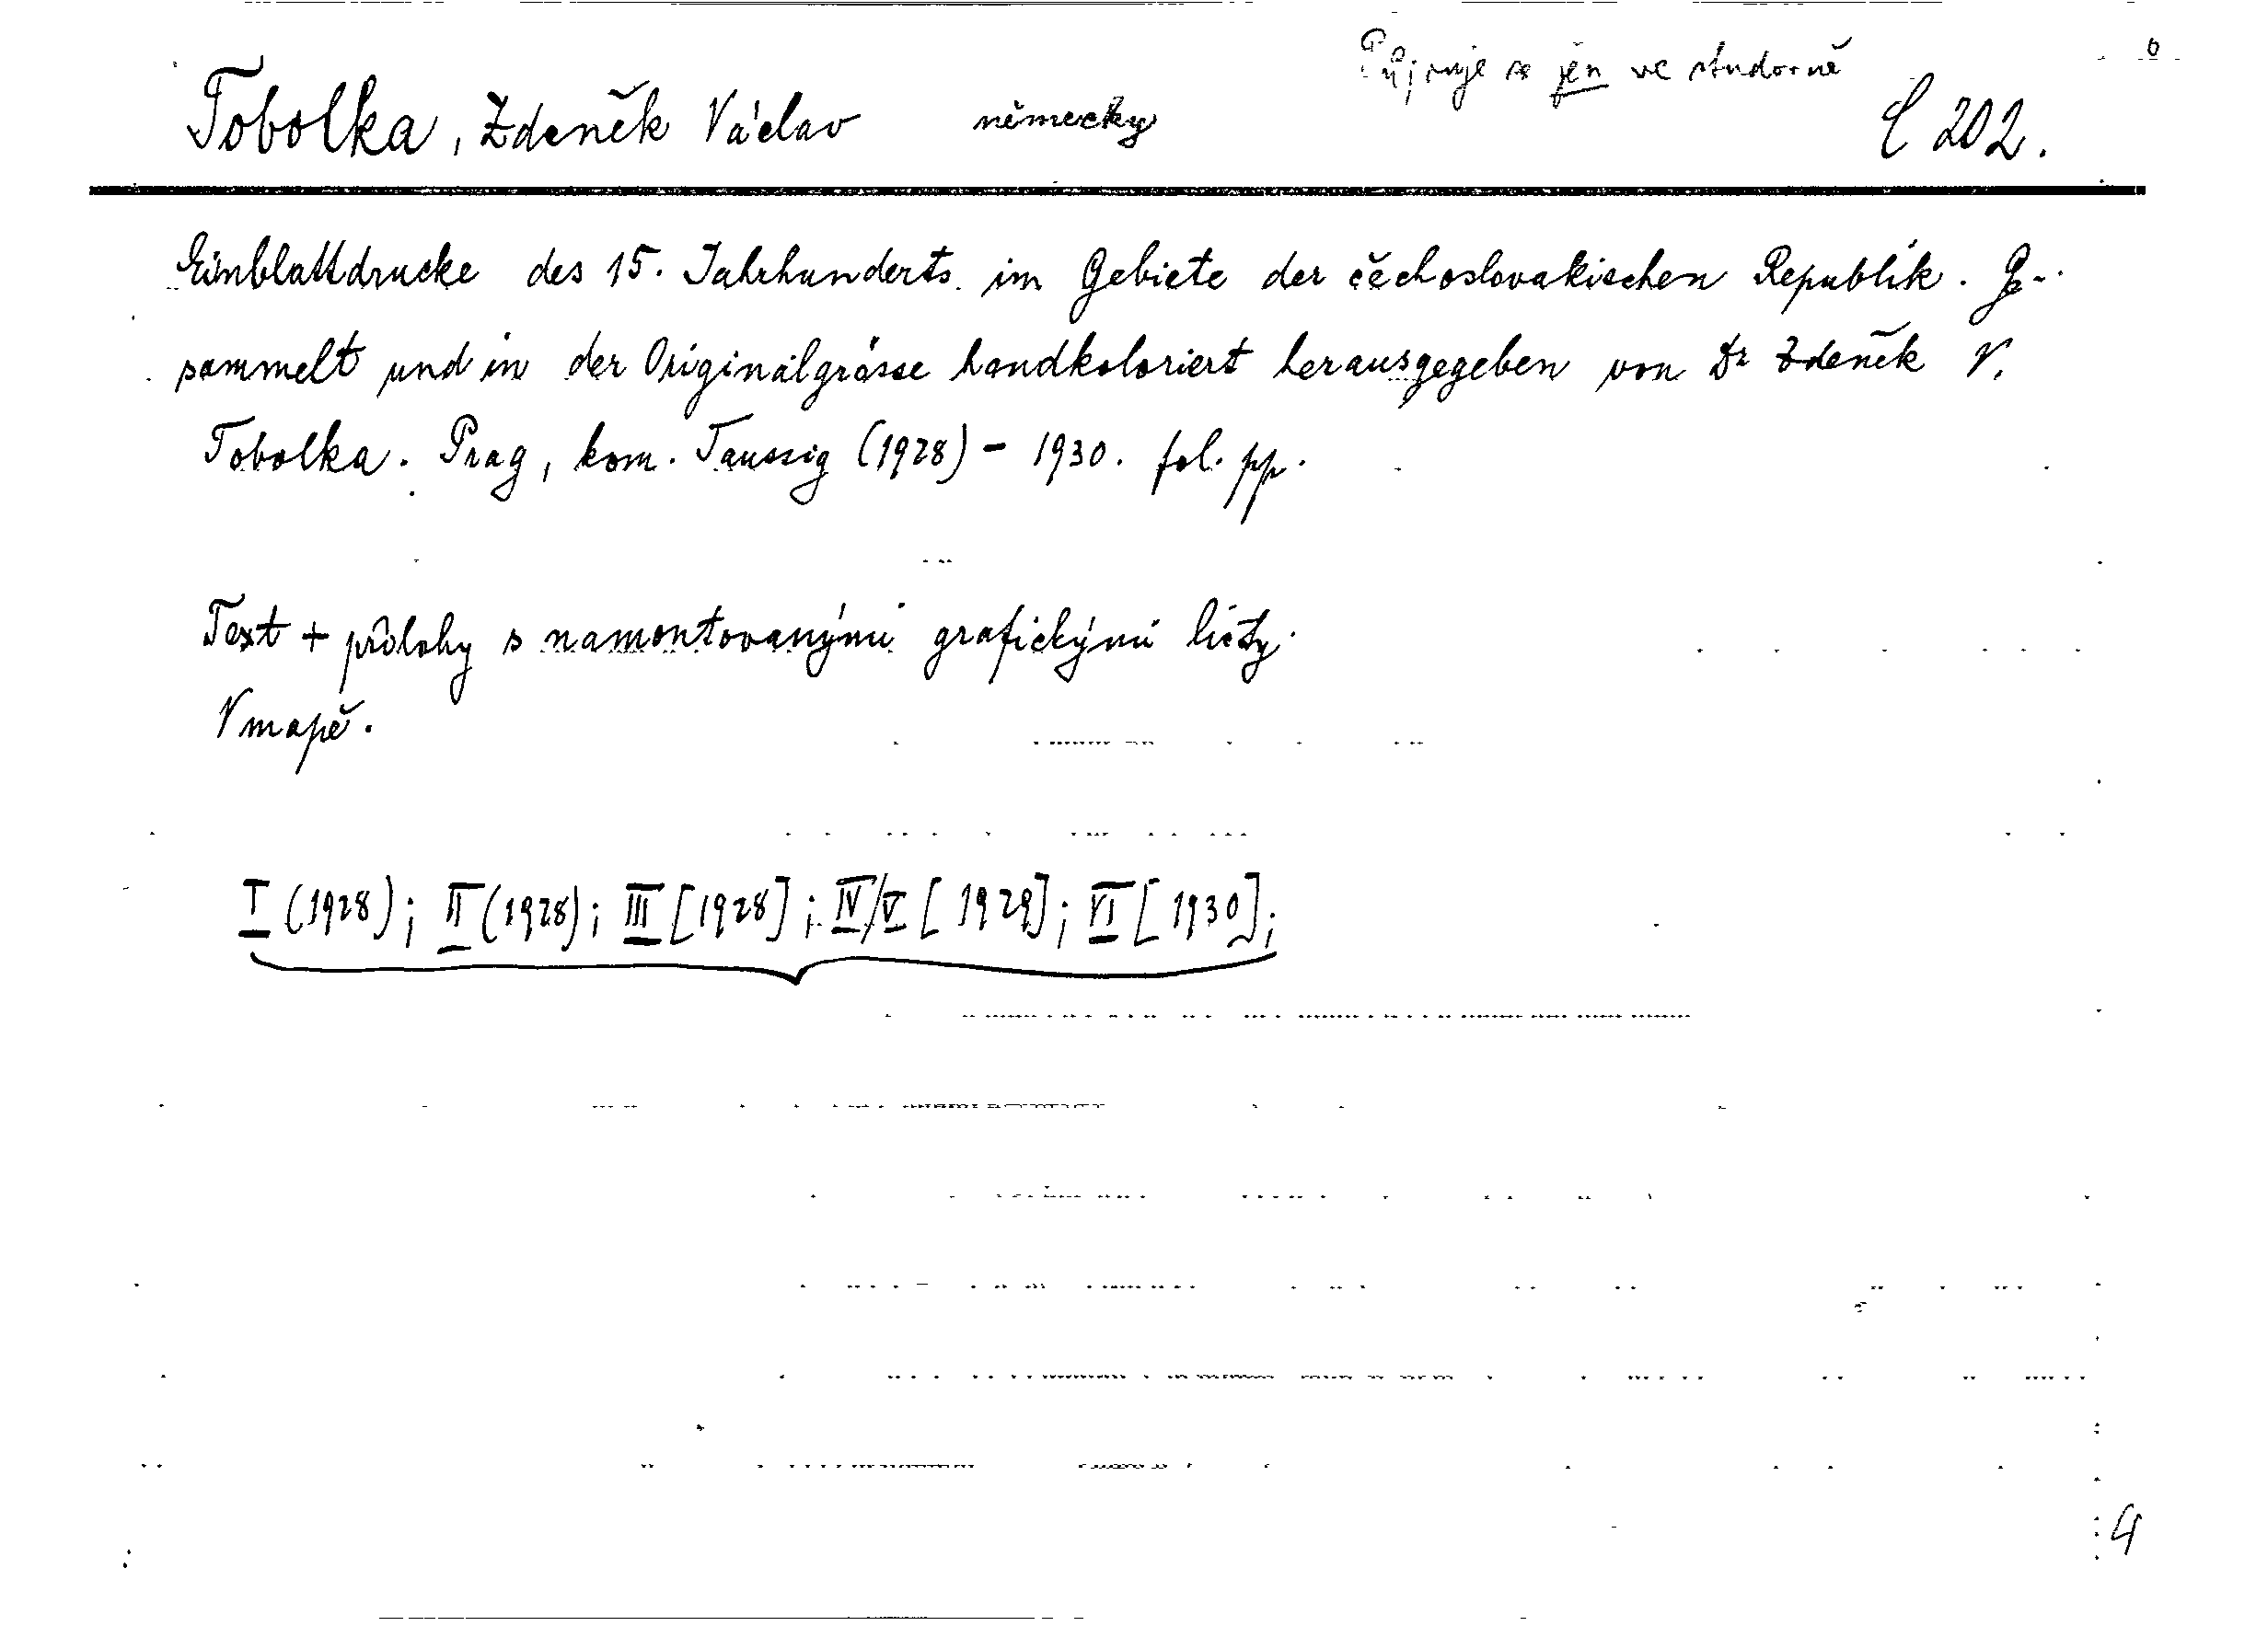 Půjčuje se jen ve studovně
Tobolka, Zdeněk Václav německy C 202.
Einblattdrucke des 15. Jahrhunderts im Gebiete der čechoslovakischen Republik. Ge-
sammelt und in der Originalgrösse handkoloriert herausgegeben von Dr Zdeněk V.
Tobolka. Prag, kom. Taussig (1928) - 1930. fol. pp.
Text + přílohy s namontovanými grafickými listy.
V mapě.
I (1928); II (1928); III [1928]; IV/V [1929]; VI [1930];
4